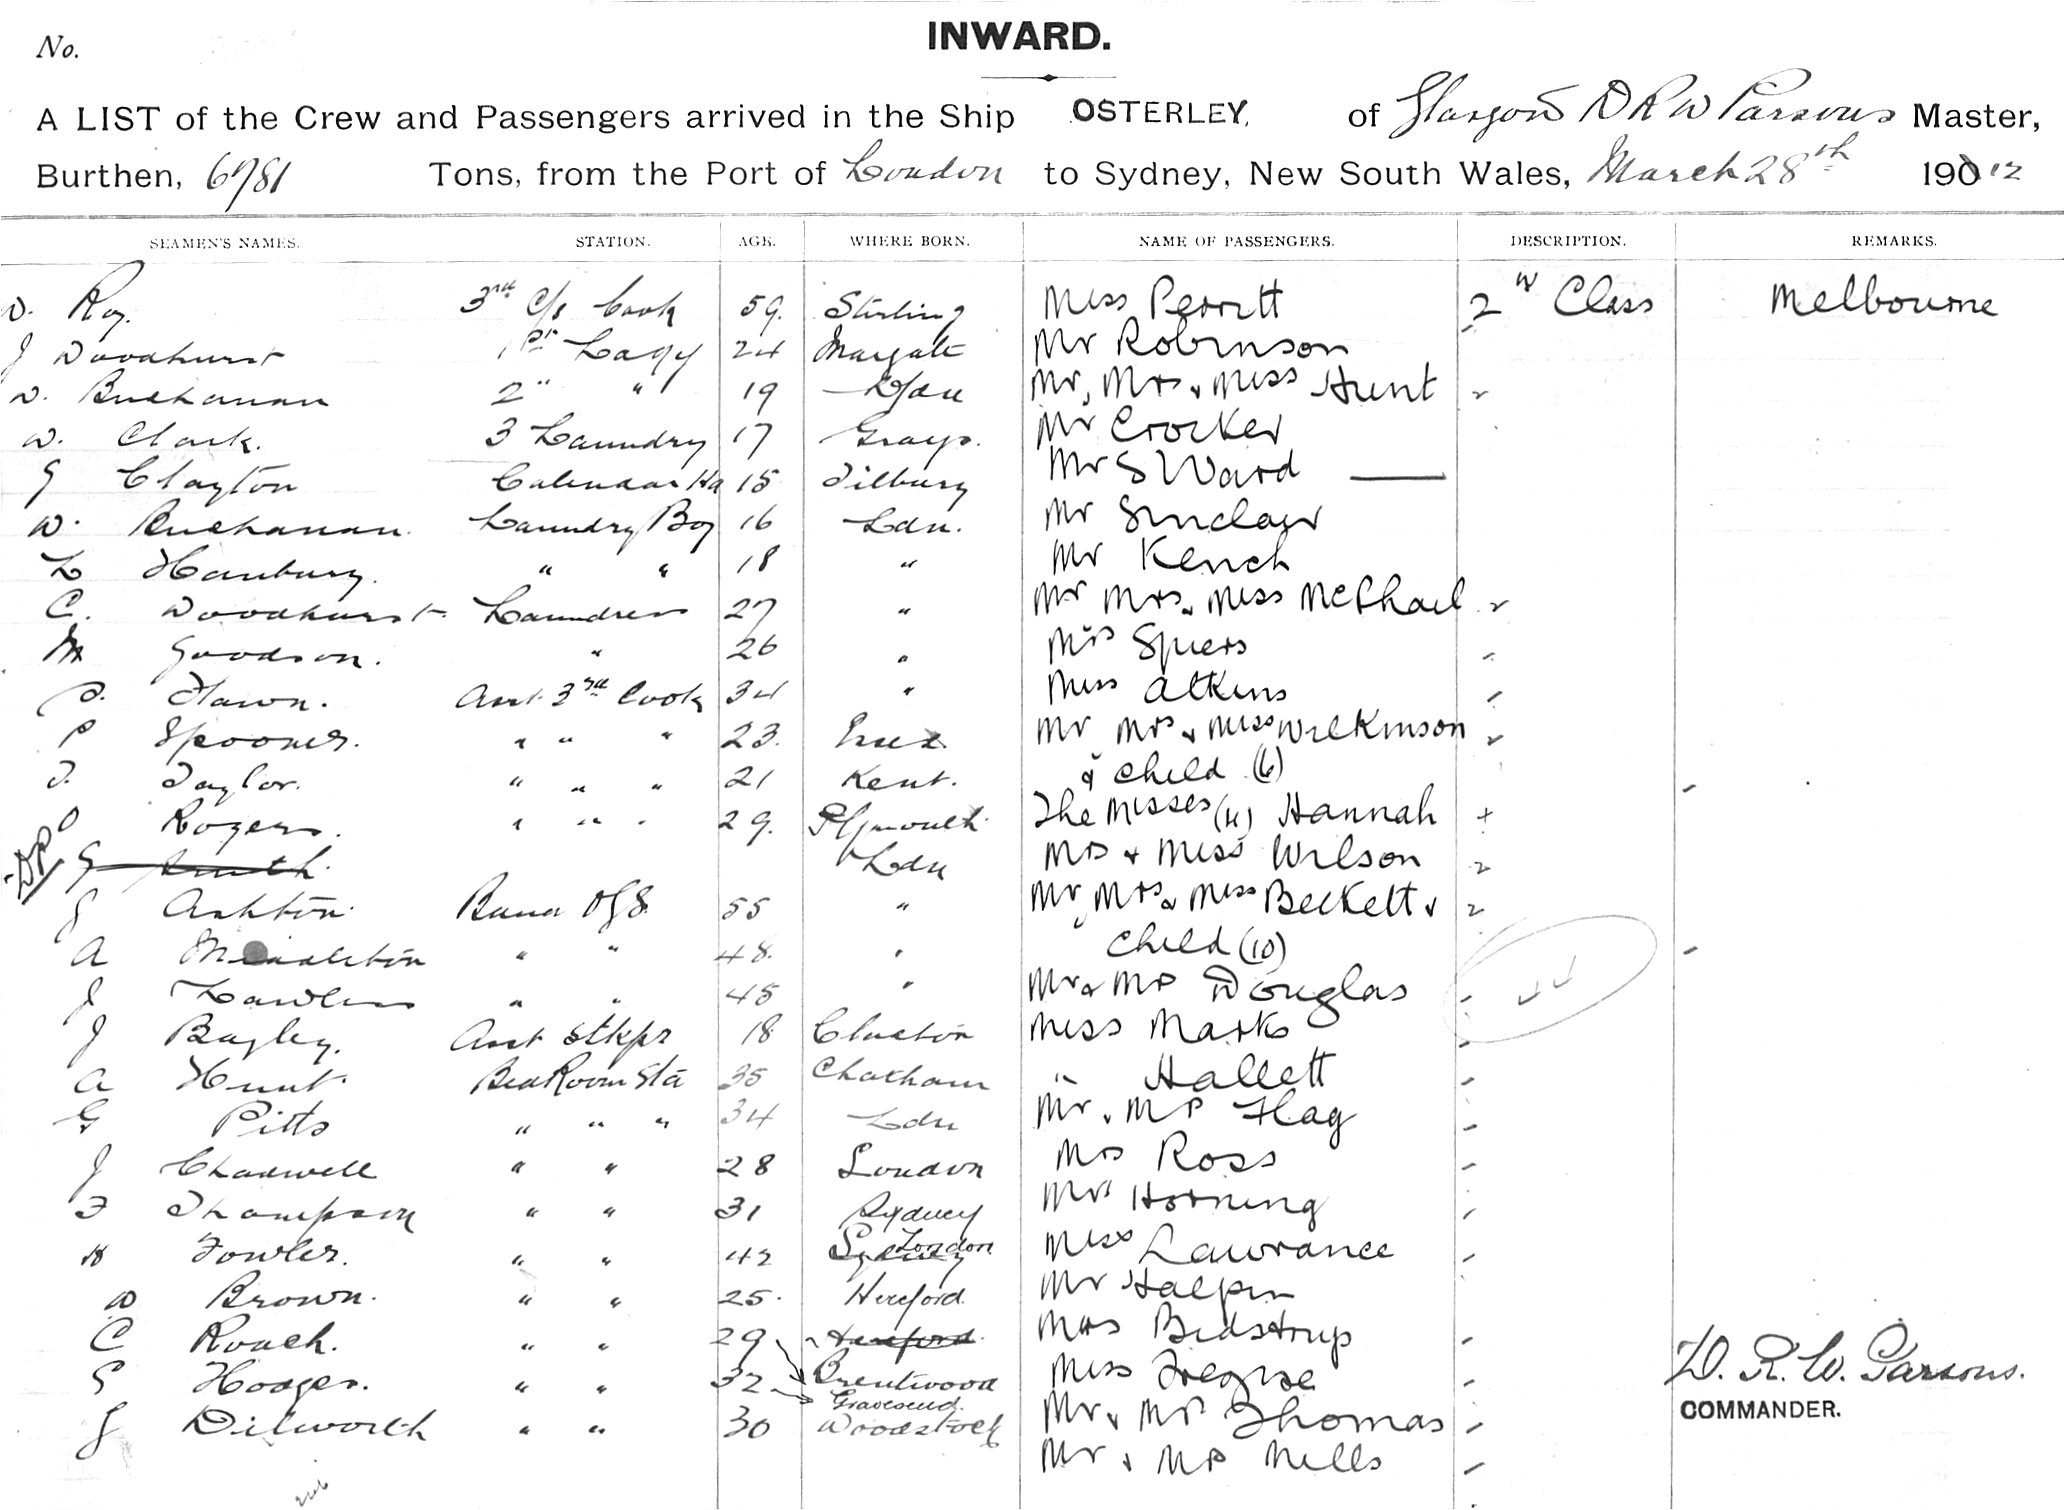 No.
INWARD.
A LIST of the Crew and Passengers arrived in the Ship OSTERLEY. of Glasgow D R W Parsons Master,
Burthen, 6781 Tons, from the Port of London to Sydney, New South Wales, March 28th 190 12
SEAMEN'S NAMES. STATION. AGE. WHERE BORN. NAME OF PASSENGERS. DESCRIPTION. REMARKS.
W. Roy. 3rd C/s Cook 59. Stirling Miss Perritt 2nd Class Melbourne
J Woodhurst 1st 24 Margate Mr Robinson
W. Buchanan 2" " 19 Ldn Mr, Mrs & Miss Hunt
W. Clark. 3 Laundry 17 Grays. Mr Crocker
G Clayton Calendar Ha 15 Tilbury Mr S Ward
W. Buchanan. Laundry Boy 16 Ldn. Mr Sinclair
L Hanbury. " " 18 " Mr Kench
C. Woodhurst Laundress 27 " Mr Mrs & Miss McPhail
M Goodson. " 26 " Mrs Spiers
Hawn. Asst 3rd Cook 34 " Miss Atkins
P Spooner. " " " 23. Essex Mr Mrs & Miss Wilkinson
T. Taylor. " " " 21 Kent. & Child (6)
Rogers. " " " 29. Plymouth The Misses (4) Hannah +
G Smith. Ldn Mrs & Miss Wilson 2
J Ashton. Band 55 " Mr, Mrs & Miss Beckett & 2
A Middleton " " 48. " Child (10)
J Lawless " " 45 " Mr & Mrs Douglas
J Bagley. Asst Stkpr 18 Clacton Miss Marks
A Hunt. Bed Room Std 35 Chatham " Hallett
G Pitts " " " 34 Ldn Mr & Mrs Flag
J Chadwell " " 28 London Mrs Ross
F Thompson " " 31 Sydney Mrs Horning
H Fowler. " " 42 Sydney London Miss Lawrance
W Brown. " " 25. Hereford. Mr Halpin
C Roach. " " 29 Hereford. Mrs Bidstrup
G Hodges. " " 32 Brentwood Miss D. R. W. Parsons.
Gravesend.
COMMANDER.
J Dilworth " " 30 Woodstock Mr & Mrs Thomas
Mr & Mrs Mills